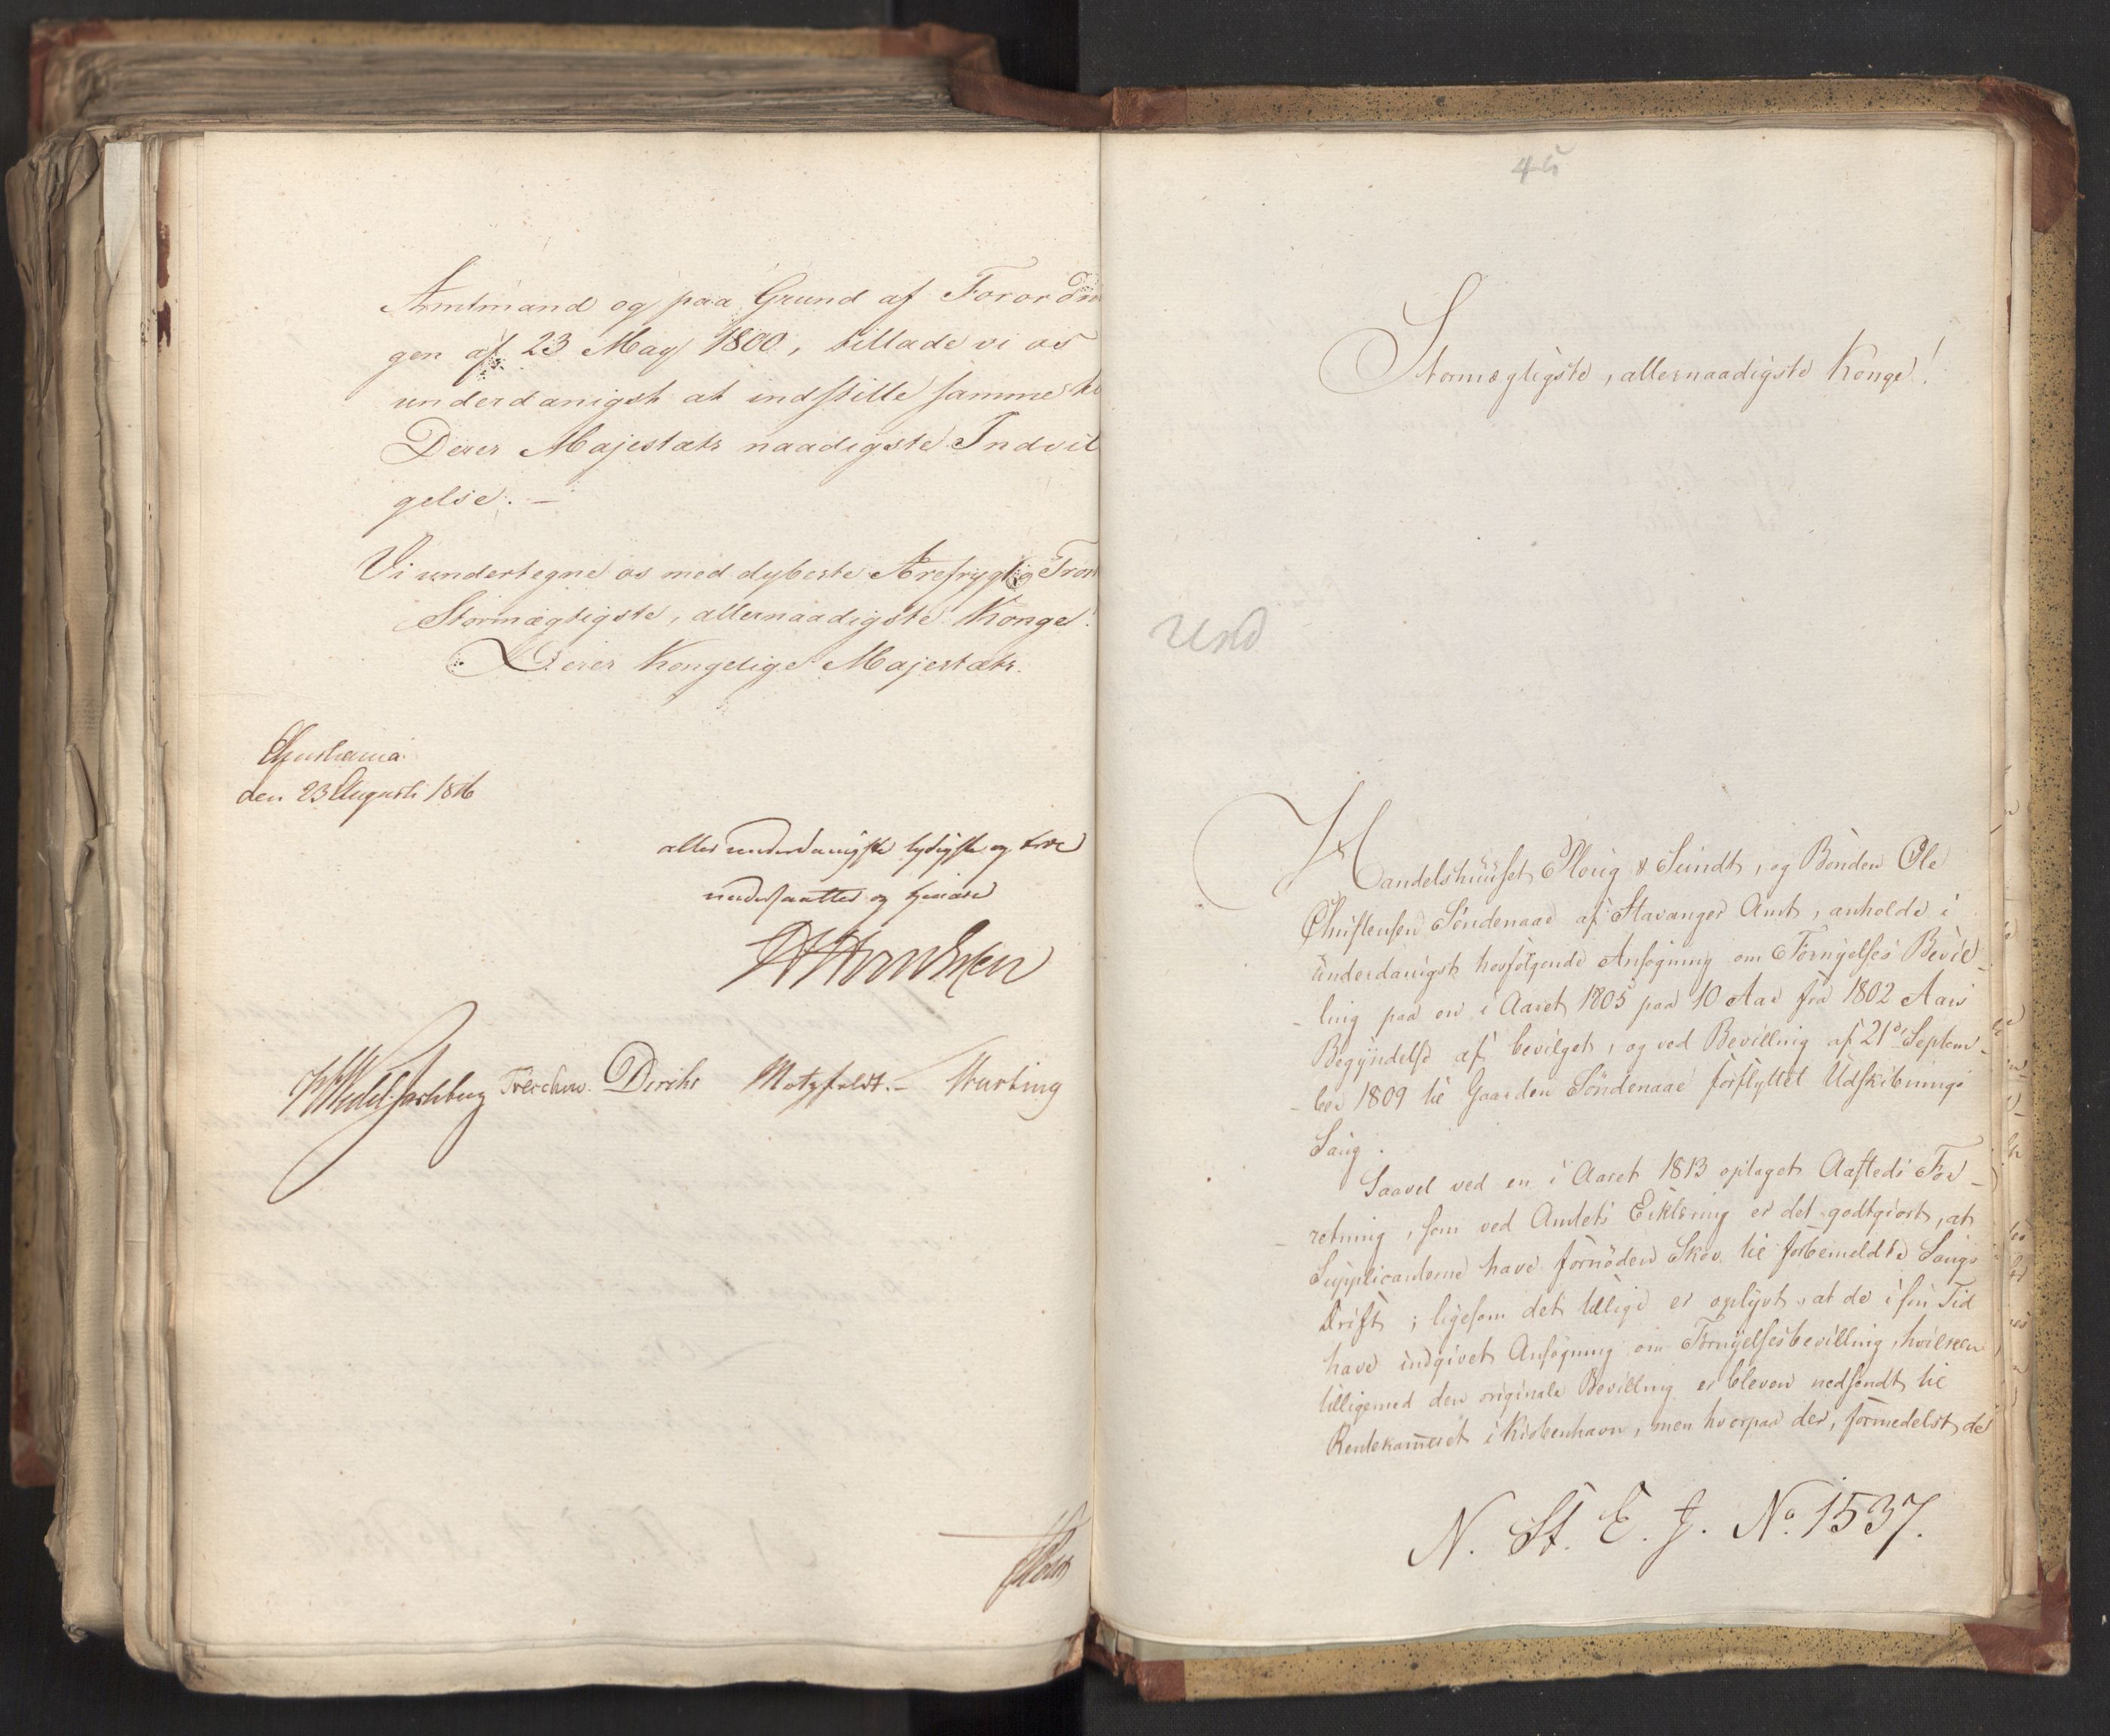 Amtmand og paa Grund af Forordnin
gen af 23 May 1800, tillade vi os
underdanigst at indstille samme til
Deres Majestæts naadigste Indvil
gelse. —
Vi undertegne os med dybeste Ærefrygt og Trosk
Stormægtigste, allernaadigste Konge!
Deres Kongelige Majestæts.
Christiania
den 23 Augusti 1816
allerunderdanigste lydigste og troe
undersaatter og tjenere
Wedel Jarlsberg Treschow. Diriks Motzfeldt. — Krarting
45
Stormægtigste, allernaadigste Konge!
Und
Handelshuuset Ploug & Sundt, og Bonden Ole
Christensen Søndenaae af Stavanger Amt, anholde i
underdanigst hosfølgende Ansøgning om Fornyelses Bevil-
ling paa en i Aaret 1805 paa 10 Aar fra 1802 Aars
Begyndelse af bevilget, og ved Bevilling af 21de Septem-
ber 1809 til Gaarden Søndenaae forflyttet Udskibnings
Saug.
Saavel ved en i Aaret 1813 optaget Aasteds For-
retning, som ved Amtets Erklæring er det godtgiort, at
Supplicanterne have fornøden Skov til forbemeldte Saugs
Drift; ligesom det tillige er oplyst, at de i sin Tid
have indgivet Ansøgning om Fornyelsesbevilling, hvilken
tilligemed den originale Bevilling er bleven nedsendt til
Rentekammeret i Kiøbenhavn, men hvorpaa der, formedelst de
N. St. E. J. No. 1537.